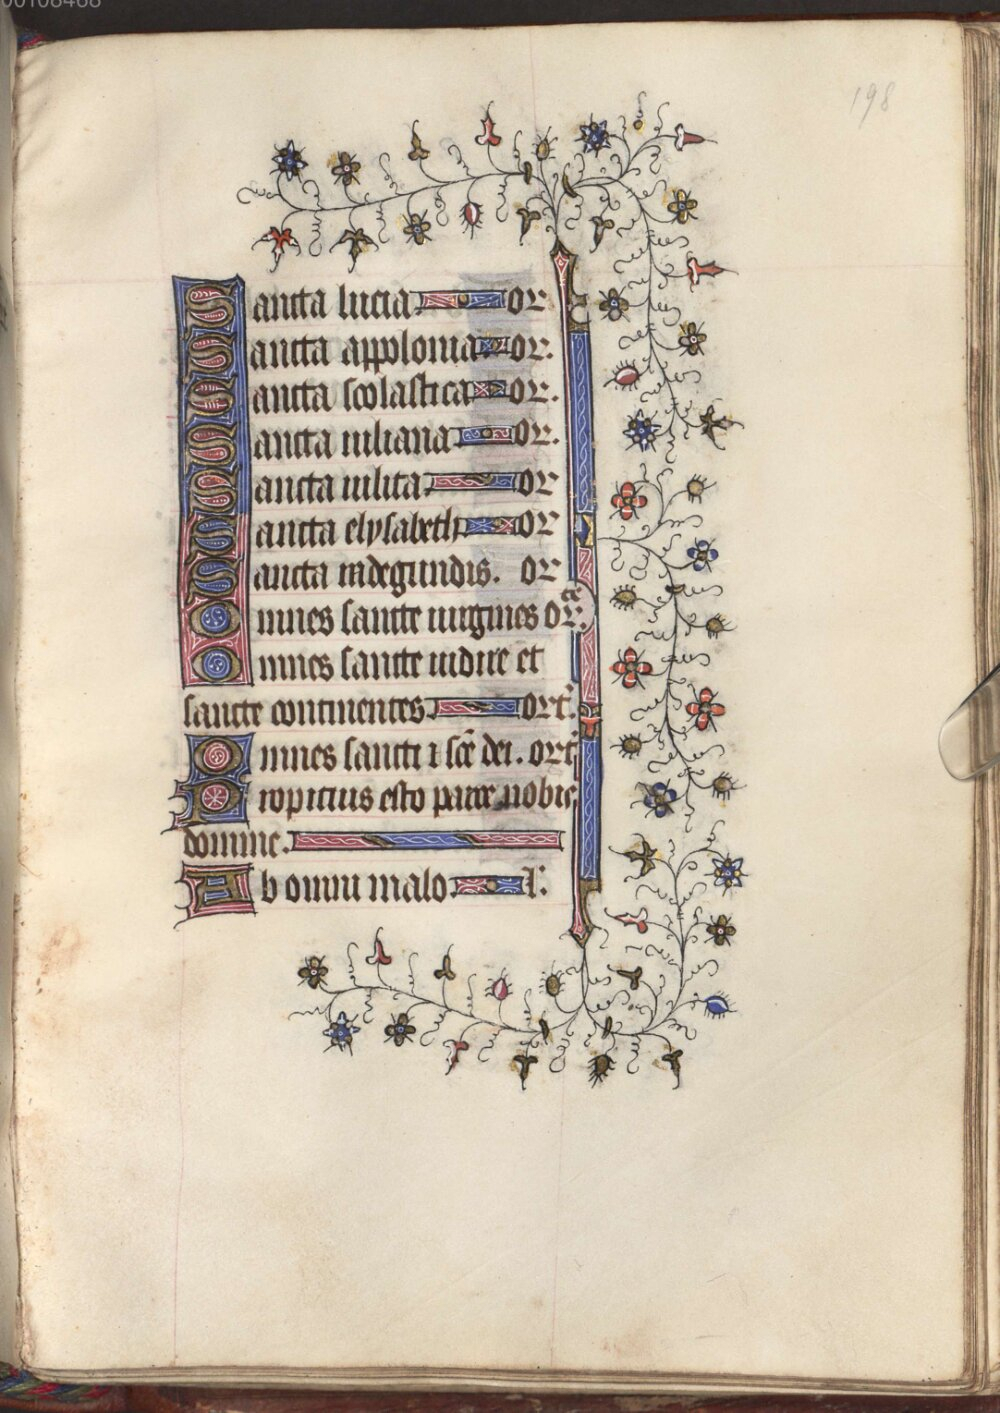 00108468
198
Sancta lucia or
Sancta appolonia or.
Sancta scolastica or.
Sancta iuliana or.
Sancta iulita or
Sancta elysabeth or
Sancta radegundis. or
Omnes sancte uirgines or.
Omnes sancte uidue et
sancte continentes ort.
Omnes sancti ⁊ sce̅ dei. ort
Propicius esto parce nobis
domine.
Ab omni malo l.